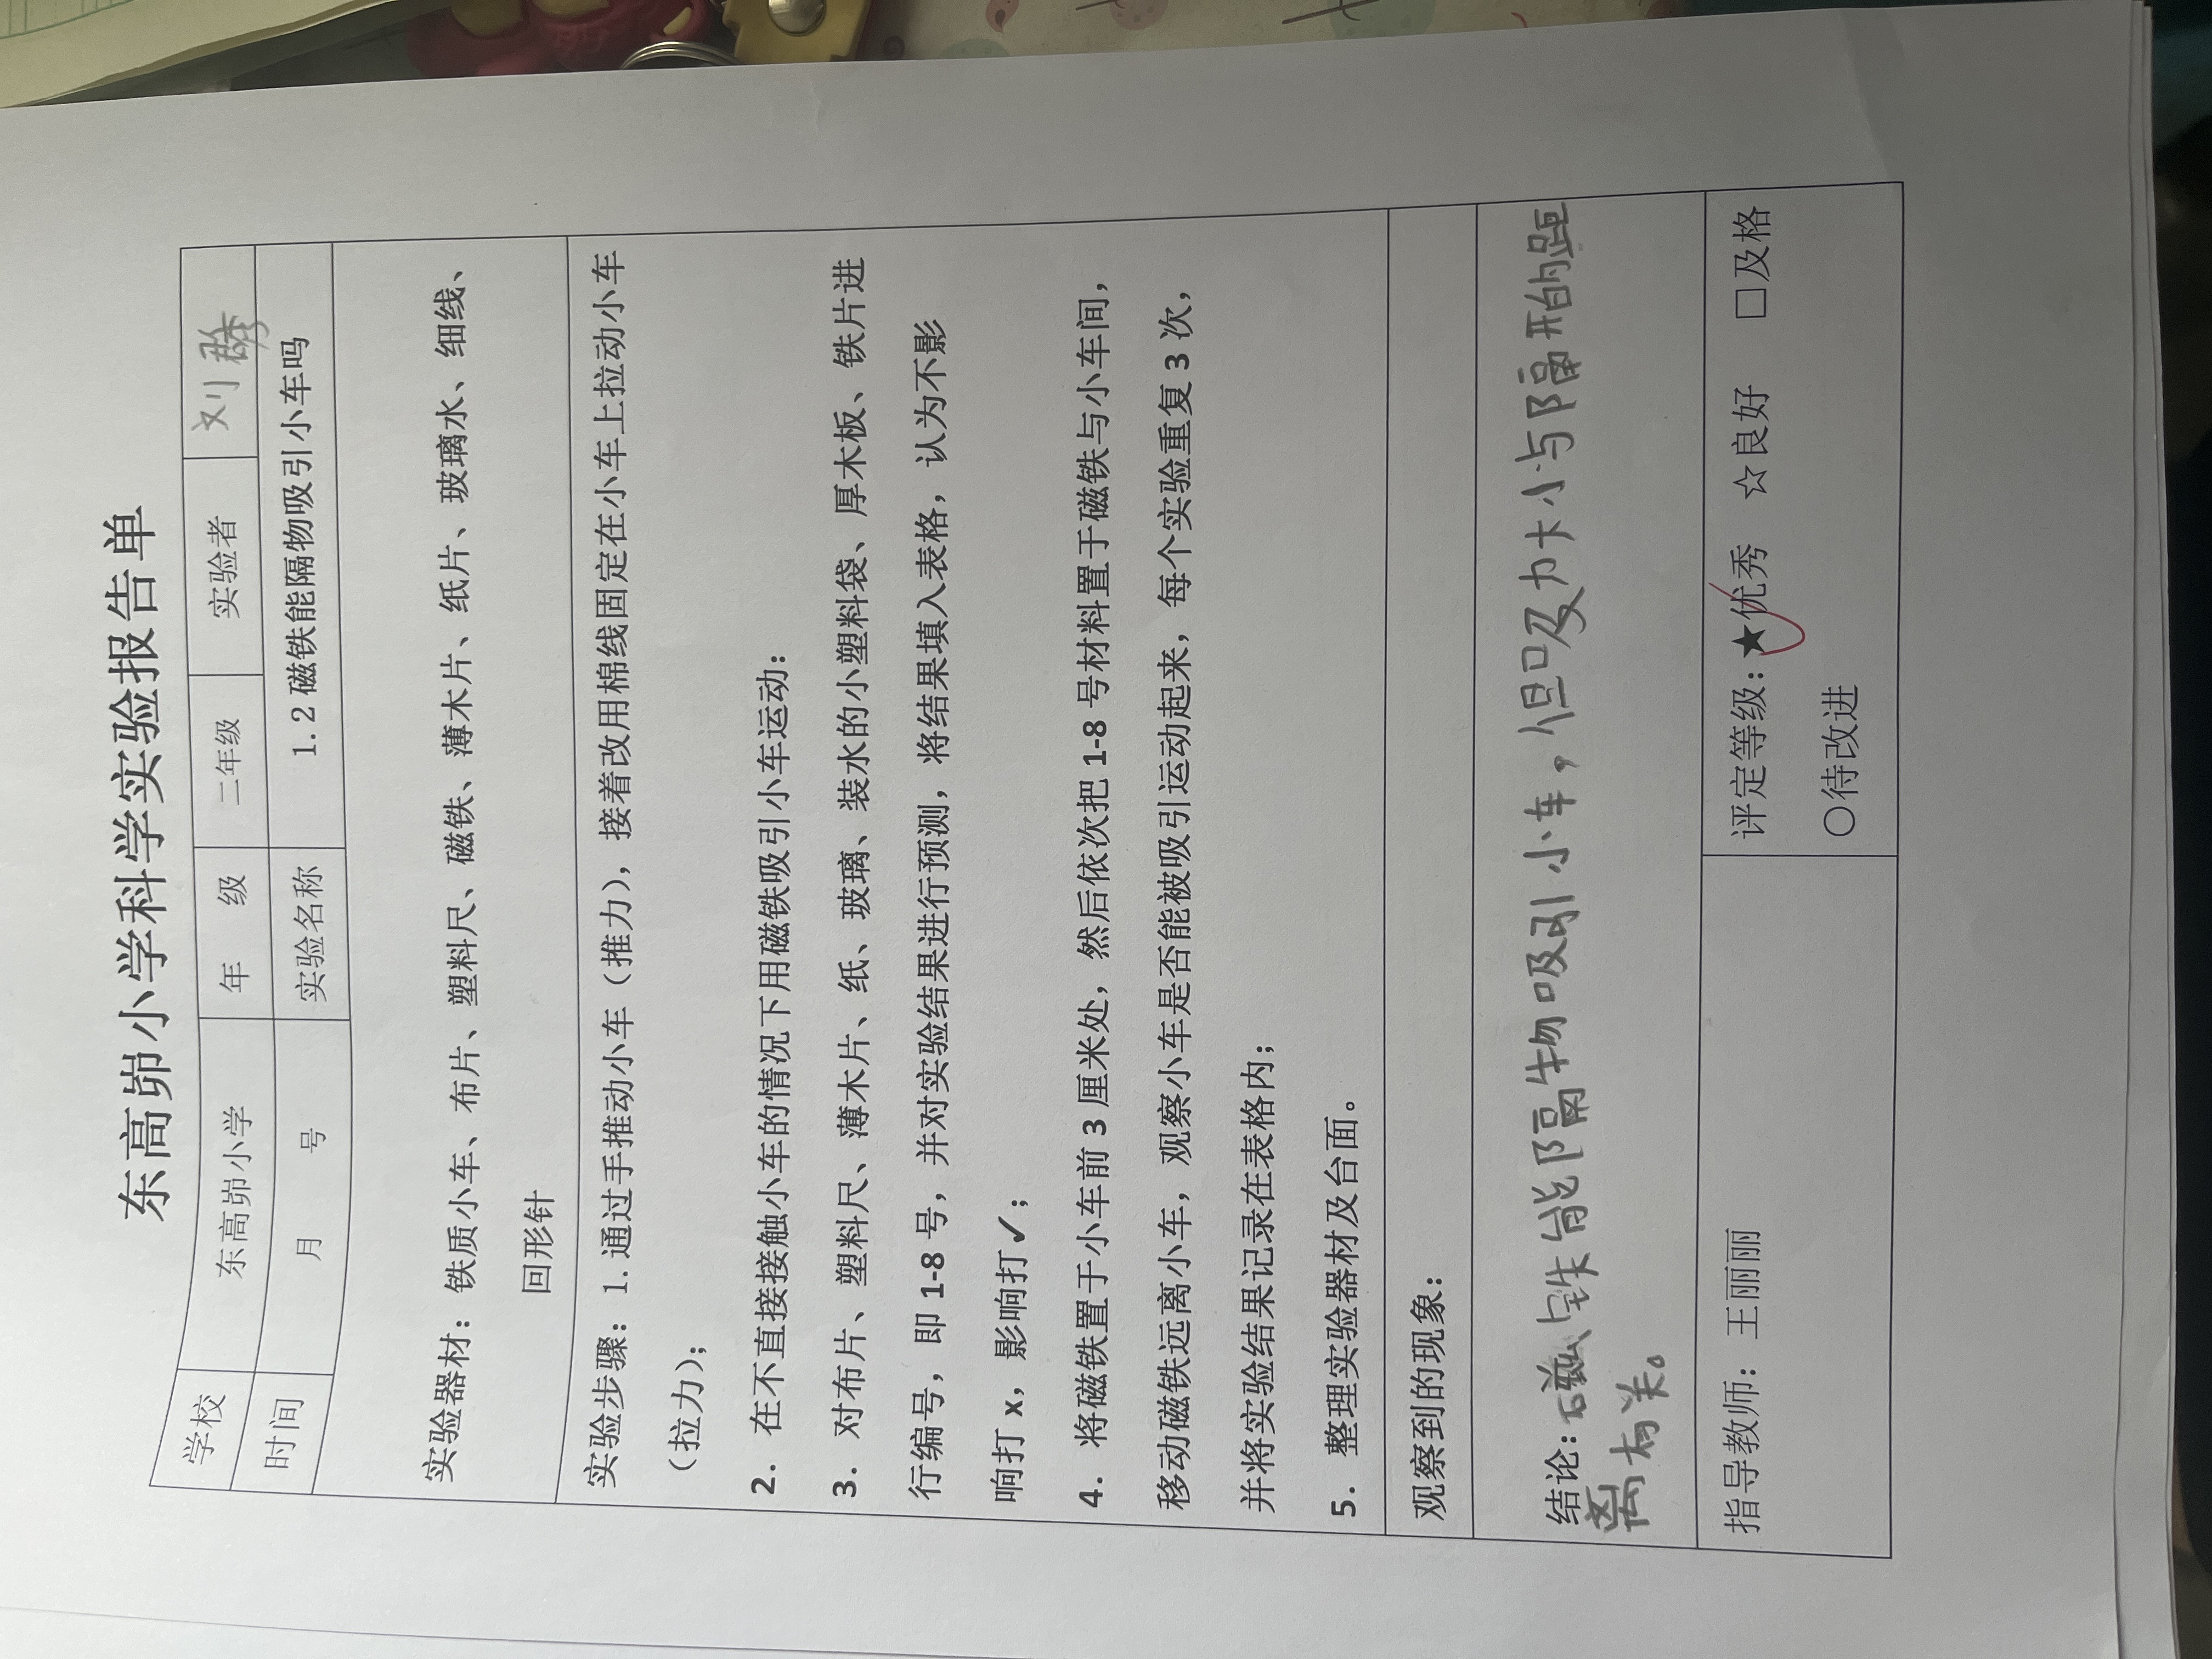 东高峁小学科学实验报告单
学校 东高峁小学 年 级 二年级 实验者 刘
时间 月 号 实验名称 1.2 磁铁能隔物吸引小车吗
实验器材：铁质小车、布片、塑料尺、磁铁、薄木片、纸片、玻璃水、细线、
回形针
实验步骤：1.通过手推动小车（推力），接着改用棉线固定在小车上拉动小车
（拉力）；
2. 在不直接接触小车的情况下用磁铁吸引小车运动：
3. 对布片、塑料尺、薄木片、纸、玻璃、装水的小塑料袋、厚木板、铁片进
行编号，即 1-8 号，并对实验结果进行预测，将结果填入表格，认为不影
响打 x，影响打✓；
4. 将磁铁置于小车前 3 厘米处，然后依次把 1-8 号材料置于磁铁与小车间，
移动磁铁远离小车，观察小车是否能被吸引运动起来，每个实验重复 3 次，
并将实验结果记录在表格内；
5. 整理实验器材及台面。
观察到的现象：
结论：磁铁能隔物吸引小车，但吸力大小与隔开的距
离有关。
指导教师：王丽丽 评定等级：★优秀 ☆良好 □及格
○待改进